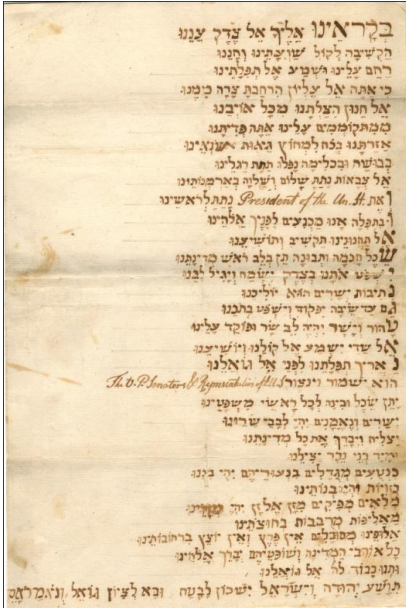 בְּקָרְאֵינוּ אֵלֶיךָ אֵל צֶדֶק עֲנֵנוּ
הַקְשִׁיבָה לְקוֹל שַׁוְעָתֵינוּ וְחָנֵנוּ
רַחֵם עָלֵינוּ וּשְׁמַע אֶל תְּפִלָּתֵינוּ
כִּי אַתָּה אֵל עֶלְיוֹן הִרְחַבְתָּ צָרָה מִמֶּנּוּ
אֵל חַנּוּן הִצַּלְתָּנוּ מִכָּל אוֹיְבֵנוּ
מִמִּתְקוֹמְמִים עָלֵינוּ אַתָּה פְּדִיתָנוּ
אִזַּרְתָּנוּ בְּכֹחַ לִמְחוֹץ גֵּאוּת שׂנְאֵינוּ
בְּבוּשָׁה וּבִכְלִימָה נָפְלוּ תַּחַת רַגְלֵינוּ
אֵל צְבָאוֹת נָתַתָּ שָׁלוֹם וְשַׁלְוָה בְּאַרְמְנוֹתֵינוּ
וְאֶת President of the Un. St. נָתַתָּ לְרֹאשֵׁינוּ
וּבִתְפִלָּה אָנוּ מִכְנָעִים לְפָנֶיךָ אֱלֹהֵינוּ
אֶל תַּחֲנוּנֵינוּ תַּקְשִׁיב וְתוֹשִׁיעֵנוּ
שֵׂכֶל חָכְמָה וּתְבוּנָה תֵּן בְּלֵב רֹאשׁ מְדִינָתֵנוּ
יִשְׁפֹּט אוֹתָנוּ בְּצֶדֶק יְשַׂמַּח וְיָגִיל לִבֵּנוּ
נְתִיבוֹת יְשָׁרִים הוּא יוֹלִיכֵנוּ
גַּם עַד שֵׂיבָה יִפְקוֹד וְיִשְׁפֹּט בְּתוֹכֵנוּ
טָהוֹר וְיָשָׁר יִהְיֶה לֵב שַׂר וּפוֹקֵד עָלֵינוּ
אֵל שַׁדַּי יִשְׁמַע אֶל קוֹלֵנוּ וְיוֹשִׁיעֵנוּ
נַאֲרִיךְ תְּפִלָּתֵנוּ לִפְנֵי אֵל גּוֹאֲלֵנוּ
הוּא יִשְׁמוֹר וְיִנְצוֹר The V.P. Senators & Representatives of U.S
יִתֵּן שֵׂכֶל וּבִינָה לְכָל רָאשֵׁי מִשְׁפָּטֵינוּ
יְשָׁרִים וְנֶאֱמָנִים יִהְיוּ לְבָבֵי שָׂרֵינוּ
יַצְלִיחַ וִיבָרֵךְ אֶת כָּל מְדִינָתֵינוּ
בְּנֵי נֵכָר יַצִּילֵנוּ
כִּנְטִעִים מְגֻדָּלִים בִּנְעוּרֵיהֶם יִהְיוּ בָּנֵינוּ
כְּזָוִיּוֹת יִהְיוּ בְּנוֹתֵינוּ
מְלֵאִים מְפִיקִים מִזַּן אֶל זַן יִהְיוּ
מַאֲלִיפוֹת מְרֻבָּבוֹת בְּחוּצֹתֵינוּ
אַלּוּפֵינוּ מְסֻבָּלִים אֵין פֶּרֶץ וְאֵין יוֹצֵץ בִּרְחוֹבוֹתֵינוּ
כָּל אוֹהֲבֵי הַמְּדִינָה וְשׁוֹפְטֶיהֶם יְבָרֵךְ אֱלֹהֵינוּ
וּתְנוּ כָבוֹד לה' אֵל גּוֹאֲלֵנוּ
תִּוָּשַׁע יְהוּדָה וְיִשְׂרָאֵל יִשְׁכּוֹן לָבֶטַח וּבָא לְצִיּוֹן גּוֹאֵל וְנֹאמַר אָמֵן